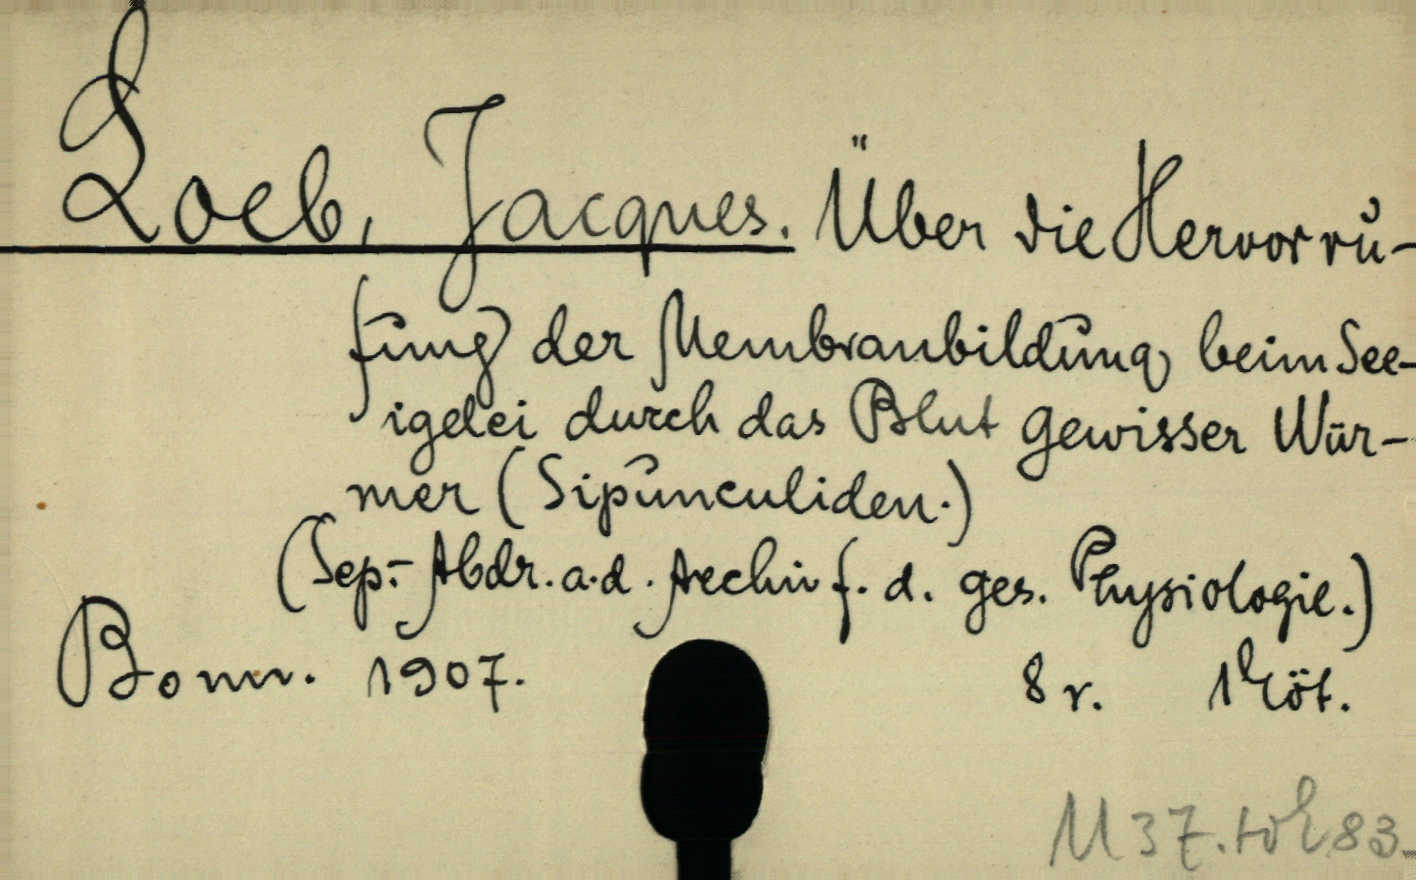 Loeb, Jacques. Über die Hervorru-
fung der Membranbildung beim See-
igelei durch das Blut gewisser Wür-
mer (Sipunculiden.)
(Sep.-Abdr. a. d. Archiv f. d. ges. Physiologie.)
Bonn. 1907. 8r. 1 Köt.
M 37.